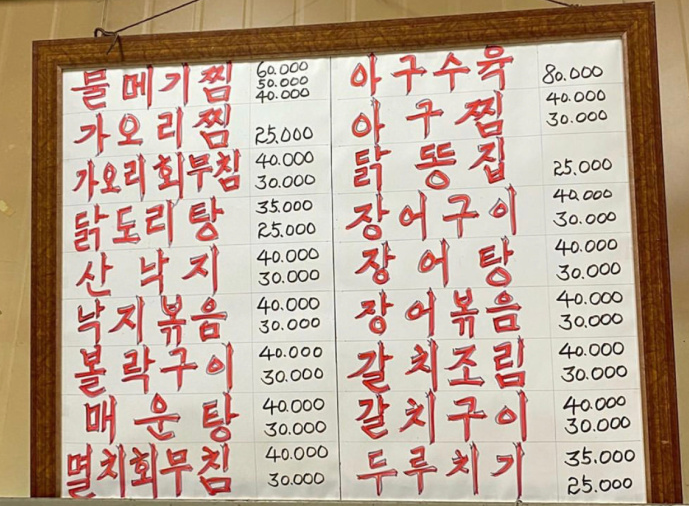 물메기찜 60.000
50.000
40.000
가오리찜 25.000
가오리회무침 40.000
30.000
닭도리탕 35.000
25.000
산낙지 40.000
30.000
낙지볶음 40.000
30.000
볼락구이 40.000
30.000
매운탕 40.000
30.000
멸치회무침 40.000
30.000
아구수육 80.000
아구찜 40.000
30.000
닭똥집 25.000
장어구이 40.000
30.000
장어탕 40.000
30.000
장어볶음 40.000
30.000
갈치조림 40.000
30.000
갈치구이 40.000
30.000
두루치기 35.000
25.000